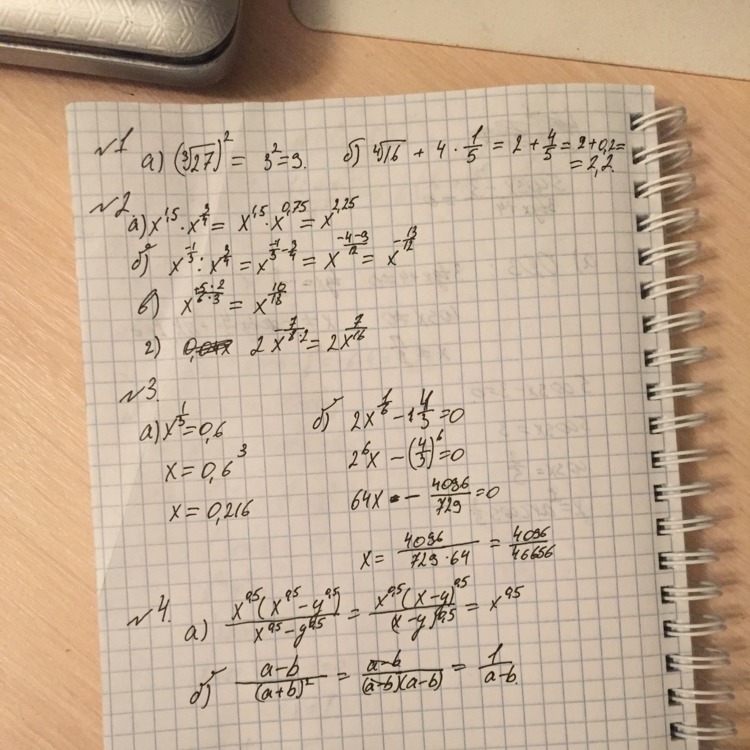 №1 а) (∛27)² = 3² = 9. б) ∜16 + 4 · 1/5 = 2 + 4/5 = 2 + 0,2 =
= 2,2.
№2.
а) x^1,5 · x^(3/4) = x^1,5 · x^0,75 = x^2,25
б) x^(-1/3) : x^(3/4) = x^(-1/3 - 3/4) = x^((-4-9)/12) = x^(-13/12)
в) x^((-5·2)/(6·3)) = x^(10/18)
г) 2x^(7/(8·2)) = 2x^(7/16)
№3.
а) x^(1/3) = 0,6 б) 2x^(1/6) - 4/3 = 0
x = 0,6³ 2⁶x - (4/3)⁶ = 0
x = 0,216 64x - 4096/729 = 0
x = 4096/(729·64) = 4096/46656
№4. а) x^0,5(x^0,5 - y^0,5)/(x^0,5 - y^0,5) = x^0,5(x-y)^0,5/(x-y)^0,5 = x^0,5
б) (a-b)/(a+b)² = (a-b)/((a-b)(a-b)) = 1/(a-b).